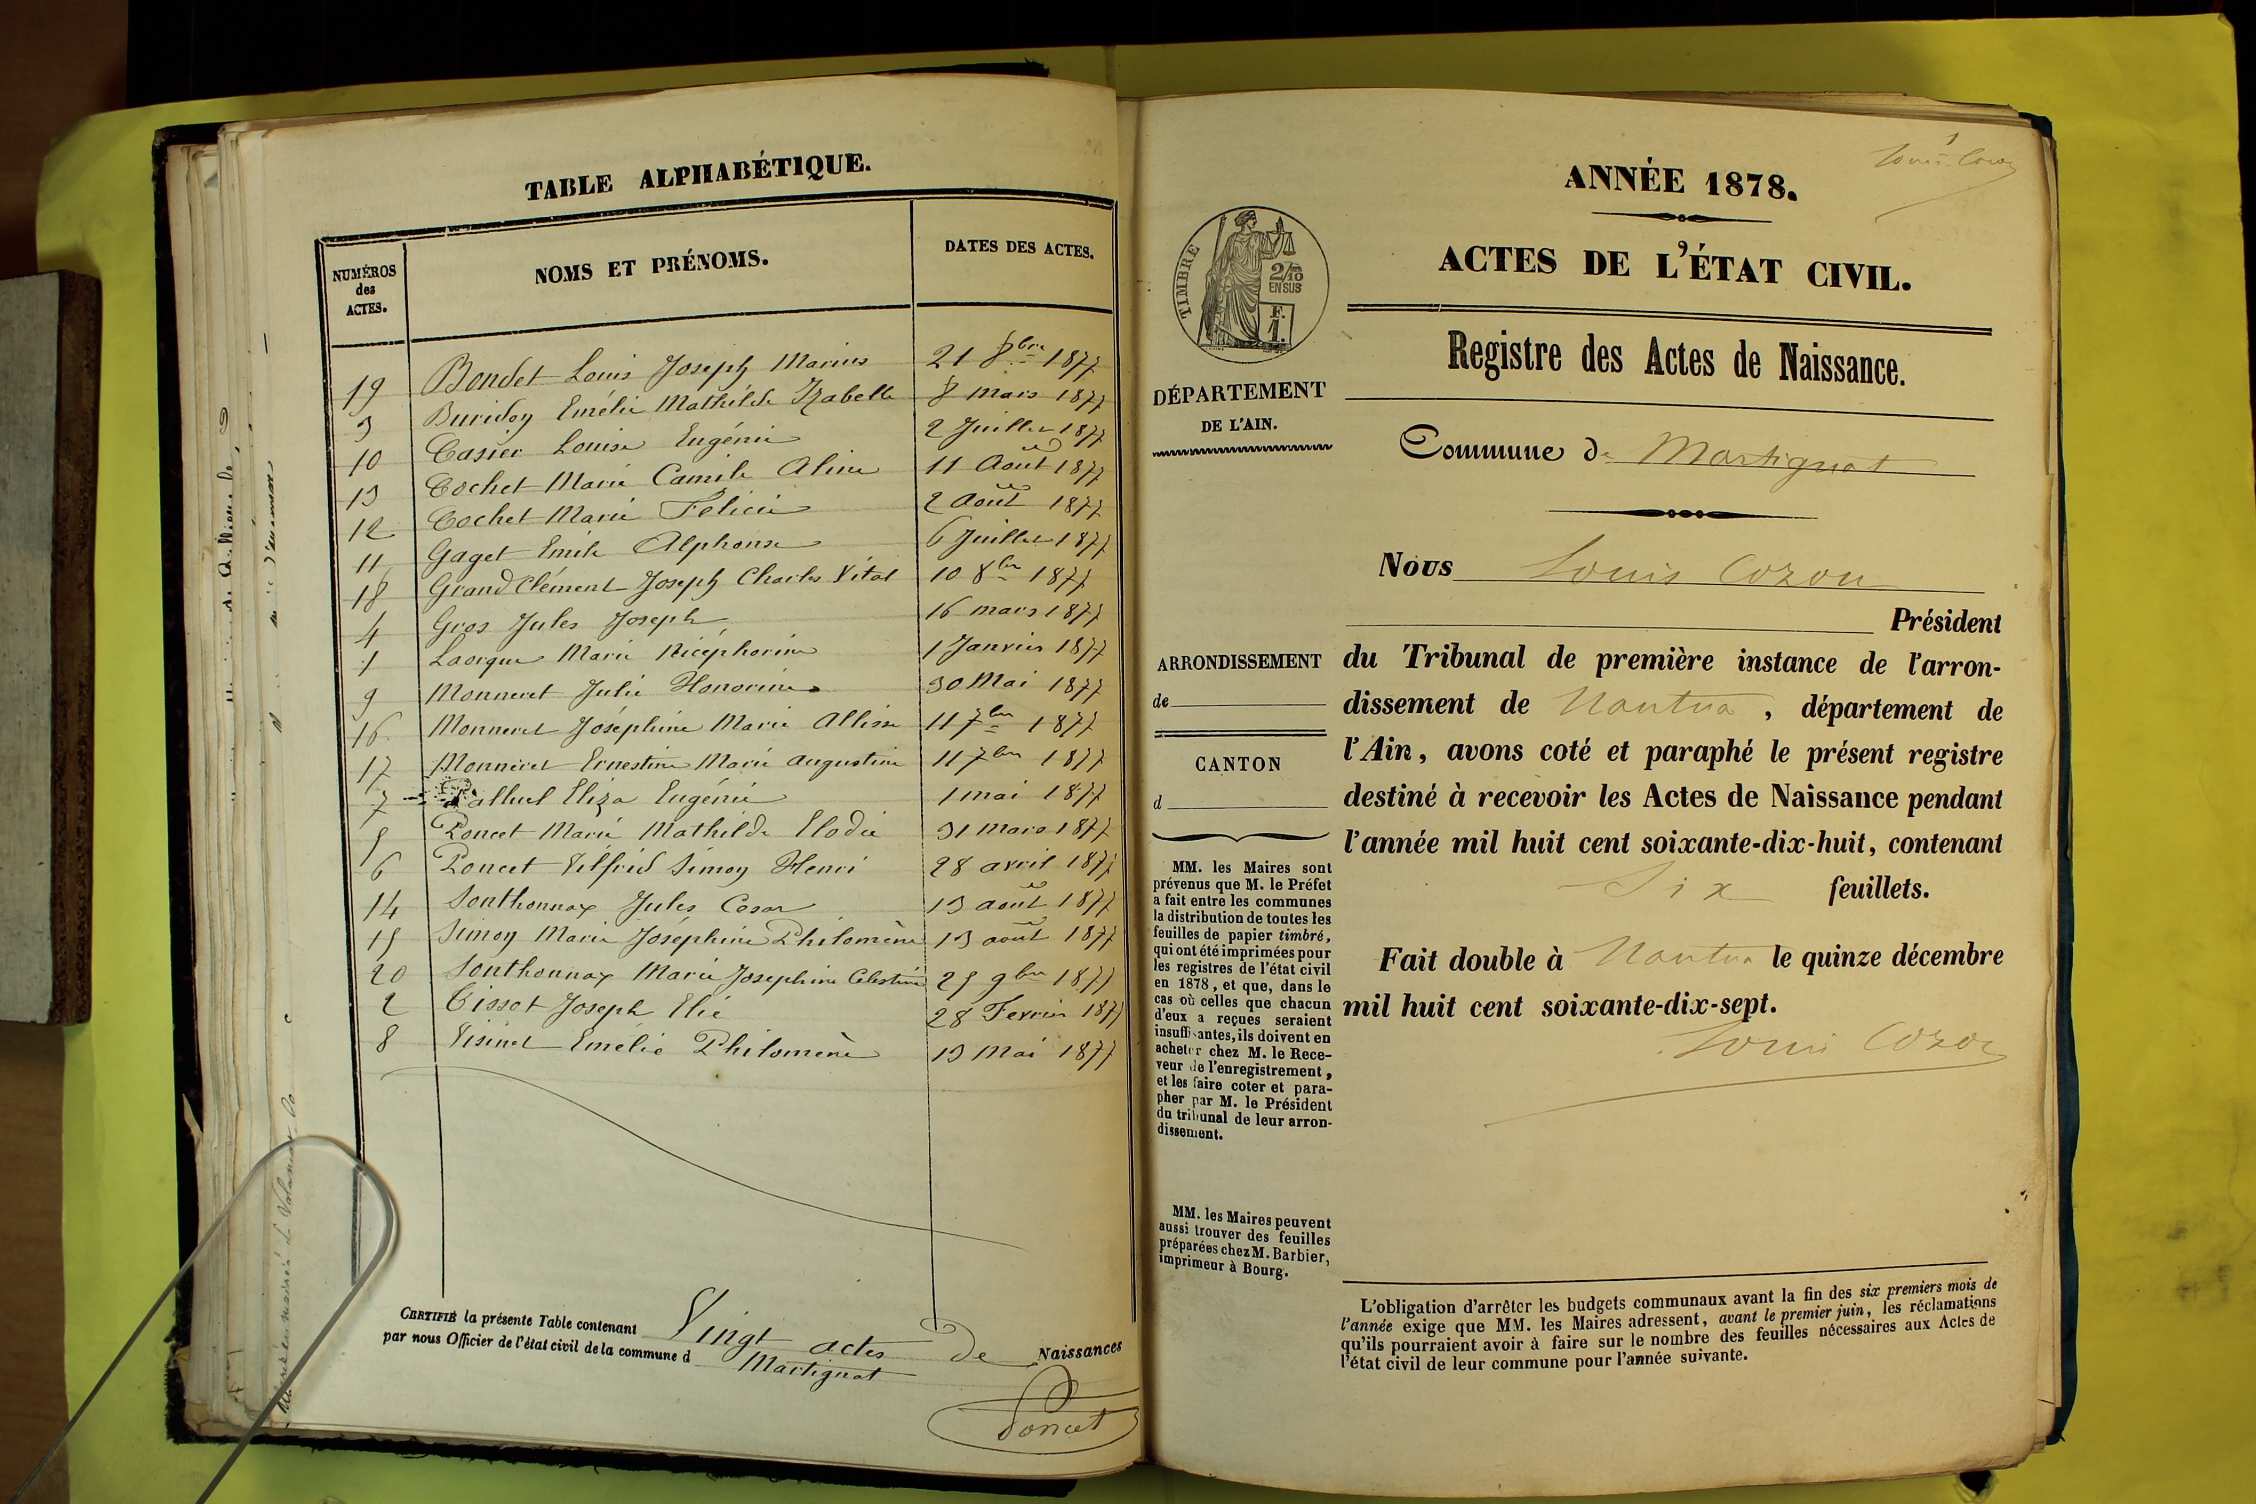 TABLE ALPHABÉTIQUE.
NUMÉROS des ACTES. NOMS ET PRÉNOMS. DATES DES ACTES.
19 Bondet Louis Joseph Marius 21 8bre 1877
3 Buridon Emélie Mathilde Izabelle 8 mars 1877
10 Casier Louise Eugénie 2 Juillet 1877
13 Cochet Marie Camile Aline 11 Août 1877
12 Cochet Marie Félicie 2 Août 1877
11 Gaget Emile Alphonse 6 Juillet 1877
18 Grand Clément Joseph Charles Vital 10 8bre 1877
4 Gros Jules Joseph 16 mars 1877
1 Laorgue Marie Nicéphorine 1 Janvier 1877
9 Monneret Julie Honorine 30 Mai 1877
16 Monneret Joséphine Marie Allise 11 7bre 1877
17 Monneret Ernestine Marie Augustine 11 7bre 1877
7 Palluel Eliza Eugénie 1 mai 1877
5 Poncet Marie Mathilde Elodie 31 mars 1877
6 Poncet Vilfrid Simon Henri 28 avril 1877
14 Sonthonnax Jules Cesar 13 août 1877
15 Simon Marie Joséphine Philomène 13 août 1877
20 Sonthonnax Marie Josephine Celestine 25 9bre 1877
2 Tissot Joseph Elie 28 Fevrier 1877
8 Visinet Emélie Philomène 13 Mai 1877
CERTIFIÉ la présente Table contenant Vingt actes de Naissances
par nous Officier de l'état civil de la commune d Martignat
Poncet
1
Louis Cozon
ANNÉE 1878.
ACTES DE L'ÉTAT CIVIL.
TIMBRE
2/10
EN SUS
F.
1.
Registre des Actes de Naissance.
DÉPARTEMENT
DE L'AIN.
Commune de Martignat
Nous Louis Cozon
Président
du Tribunal de première instance de l'arron-
dissement de Nantua, département de
l'Ain, avons coté et paraphé le présent registre
destiné à recevoir les Actes de Naissance pendant
l'année mil huit cent soixante-dix-huit, contenant
Six feuillets.
Fait double à Nantua le quinze décembre
mil huit cent soixante-dix-sept.
Louis Cozon
ARRONDISSEMENT
de
CANTON
d
MM. les Maires sont
prévenus que M. le Préfet
a fait entre les communes
la distribution de toutes les
feuilles de papier timbré,
qui ont été imprimées pour
les registres de l'état civil
en 1878, et que, dans le
cas où celles que chacun
d'eux a reçues seraient
insuffisantes, ils doivent en
acheter chez M. le Rece-
veur de l'enregistrement,
et les faire coter et para-
pher par M. le Président
du tribunal de leur arron-
dissement.
MM. les Maires peuvent
aussi trouver des feuilles
préparées chez M. Barbier,
imprimeur à Bourg.
L'obligation d'arrêter les budgets communaux avant la fin des six premiers mois de
l'année exige que MM. les Maires adressent, avant le premier juin, les réclamations
qu'ils pourraient avoir à faire sur le nombre des feuilles nécessaires aux Actes de
l'état civil de leur commune pour l'année suivante.